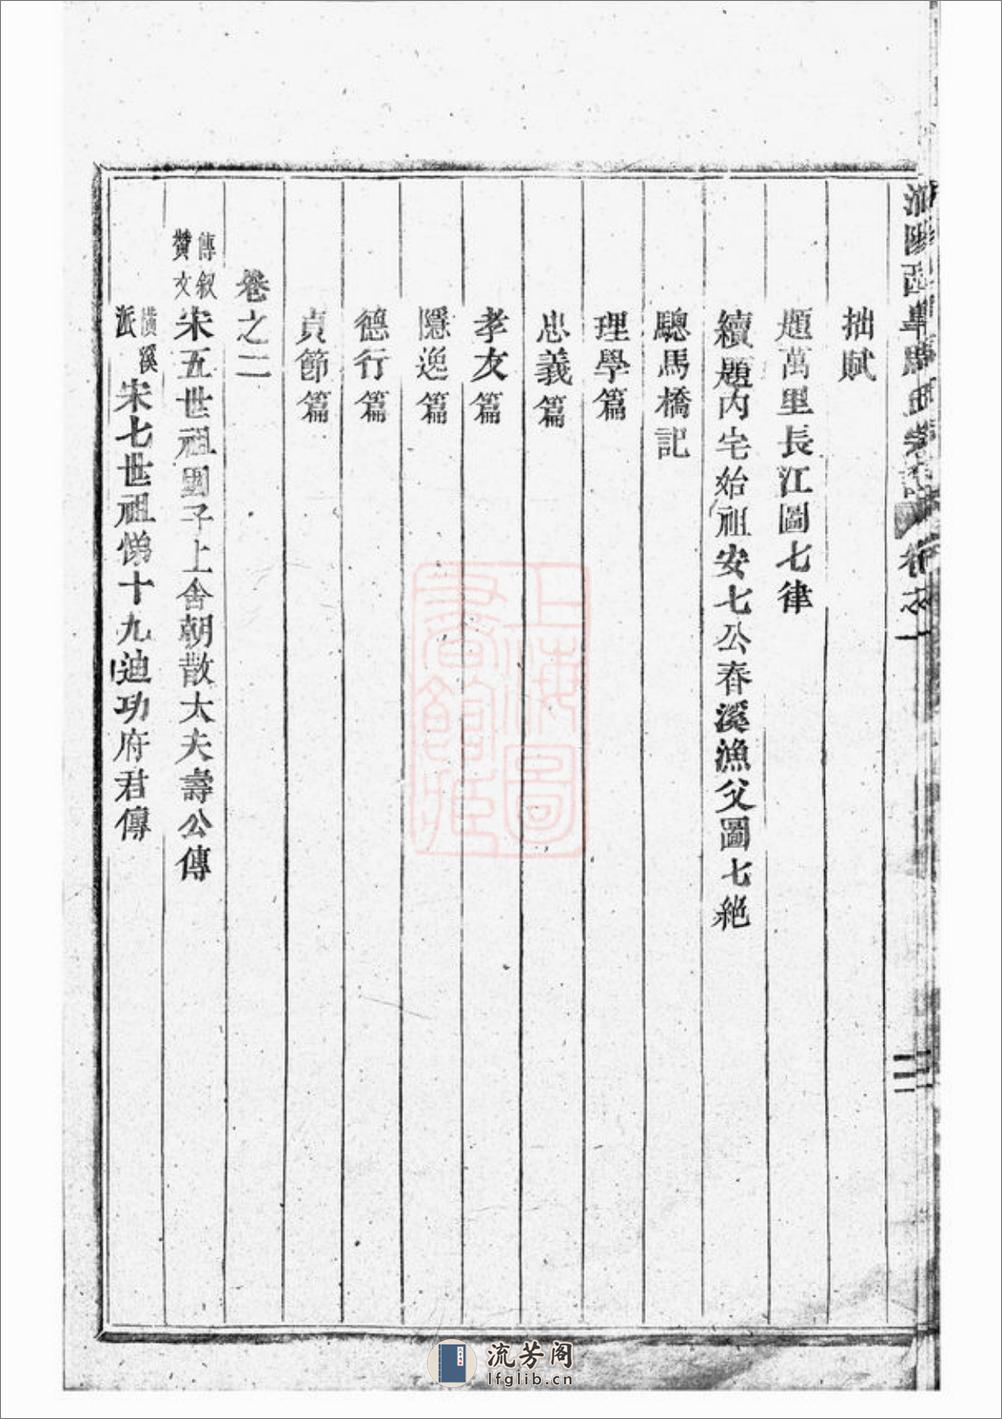 拙賦
題萬里長江圖七律
續題內宅始祖安七公春溪漁父圖七絕
驄馬橋記
理學篇
忠義篇
孝友篇
隱逸篇
德行篇
貞節篇
卷之二
傳叙贊文 宋五世祖國子上舍朝散大夫壽公傳
橫溪派 宋七世祖悌十九迪功府君傳
上海圖書館藏
流芳阁
lfglib.cn